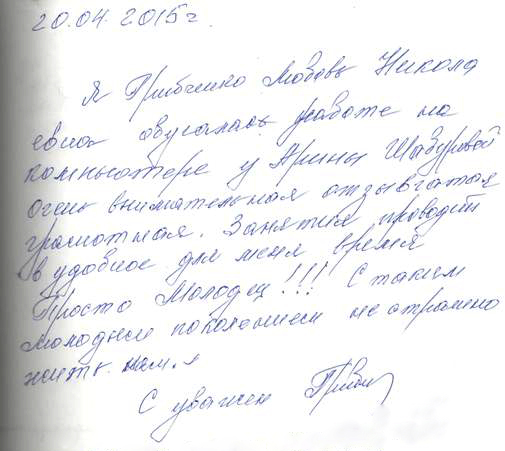 20.04.2015г.
Я Грибченко Любовь Никола
евна обучалась работе на
компьютере у Арины Шабуровой
очень внимательная отзывчатая
грамотная. Занятия проводит
в удобное для меня время
Просто Молодец!!! С таким
молодым поколением не странено
жить нам.
С уважен